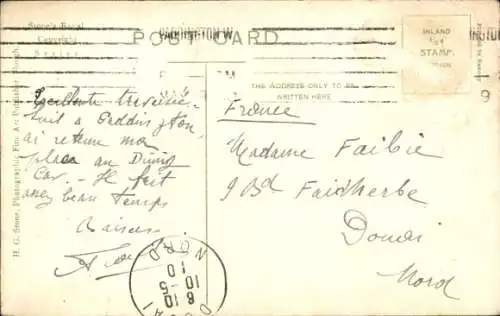 Stone's Royal
Copyright
Series
PADDINGTON W
POST CARD
INLAND
½d
STAMP.
THE ADDRESS ONLY TO BE
WRITTEN HERE
H. G. Stone, Photographic Fine Art Publisher, Slough.
Excellente traversée
suis a Paddington
ai retenu mon
place au Dining
Car. - Il fait
assez beau temps
Baisers
France
Madame Faibie
9 Bd Faidherbe
Douai
Nord
DOUAI
NORD
10
8 10-5
10